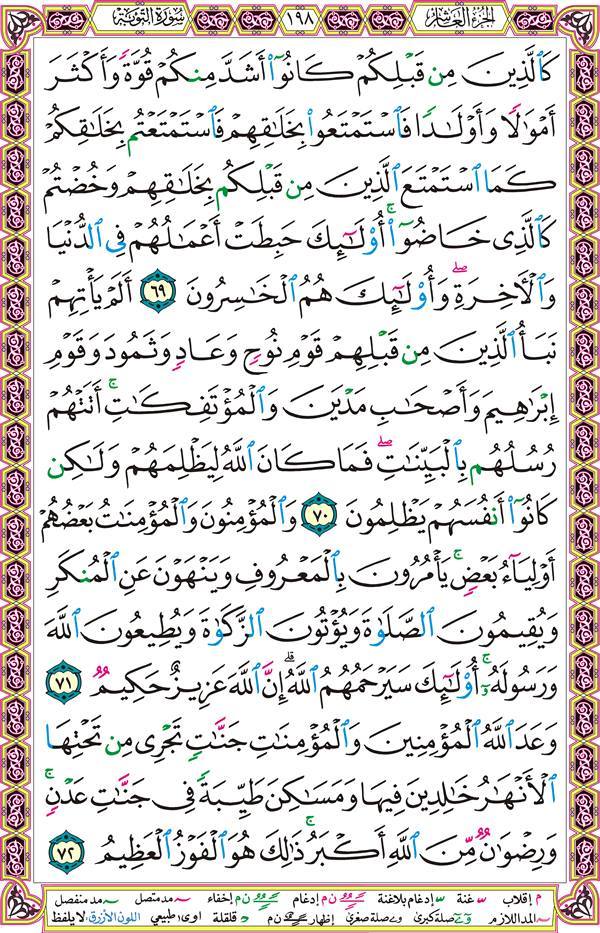 الجزء العاشر ١٩٨ سورة التوبة
كَٱلَّذِينَ مِن قَبْلِكُمْ كَانُوٓا۟ أَشَدَّ مِنكُمْ قُوَّةً وَأَكْثَرَ
أَمْوَٰلًا وَأَوْلَٰدًا فَٱسْتَمْتَعُوا۟ بِخَلَٰقِهِمْ فَٱسْتَمْتَعْتُم بِخَلَٰقِكُمْ
كَمَا ٱسْتَمْتَعَ ٱلَّذِينَ مِن قَبْلِكُم بِخَلَٰقِهِمْ وَخُضْتُمْ
كَٱلَّذِى خَاضُوٓا۟ ۚ أُو۟لَٰٓئِكَ حَبِطَتْ أَعْمَٰلُهُمْ فِى ٱلدُّنْيَا
وَٱلْءَاخِرَةِ ۖ وَأُو۟لَٰٓئِكَ هُمُ ٱلْخَٰسِرُونَ ٦٩ أَلَمْ يَأْتِهِمْ
نَبَأُ ٱلَّذِينَ مِن قَبْلِهِمْ قَوْمِ نُوحٍ وَعَادٍ وَثَمُودَ وَقَوْمِ
إِبْرَٰهِيمَ وَأَصْحَٰبِ مَدْيَنَ وَٱلْمُؤْتَفِكَٰتِ ۚ أَتَتْهُمْ
رُسُلُهُم بِٱلْبَيِّنَٰتِ ۖ فَمَا كَانَ ٱللَّهُ لِيَظْلِمَهُمْ وَلَٰكِن
كَانُوٓا۟ أَنفُسَهُمْ يَظْلِمُونَ ٧٠ وَٱلْمُؤْمِنُونَ وَٱلْمُؤْمِنَٰتُ بَعْضُهُمْ
أَوْلِيَآءُ بَعْضٍ ۚ يَأْمُرُونَ بِٱلْمَعْرُوفِ وَيَنْهَوْنَ عَنِ ٱلْمُنكَرِ
وَيُقِيمُونَ ٱلصَّلَوٰةَ وَيُؤْتُونَ ٱلزَّكَوٰةَ وَيُطِيعُونَ ٱللَّهَ
وَرَسُولَهُۥٓ ۚ أُو۟لَٰٓئِكَ سَيَرْحَمُهُمُ ٱللَّهُ ۗ إِنَّ ٱللَّهَ عَزِيزٌ حَكِيمٌ ٧١
وَعَدَ ٱللَّهُ ٱلْمُؤْمِنِينَ وَٱلْمُؤْمِنَٰتِ جَنَّٰتٍ تَجْرِى مِن تَحْتِهَا
ٱلْأَنْهَٰرُ خَٰلِدِينَ فِيهَا وَمَسَٰكِنَ طَيِّبَةً فِى جَنَّٰتِ عَدْنٍ ۚ
وَرِضْوَٰنٌ مِّنَ ٱللَّهِ أَكْبَرُ ۚ ذَٰلِكَ هُوَ ٱلْفَوْزُ ٱلْعَظِيمُ ٧٢
م إقلاب غنة إدغام بلاغنة ن م إدغام ن م إخفاء مد متصل مد منفصل
المد اللازم صلة كبرى صلة صغرى إظهار ن م قلقلة اوى طبيعي اللون الأزرق: لا يلفظ